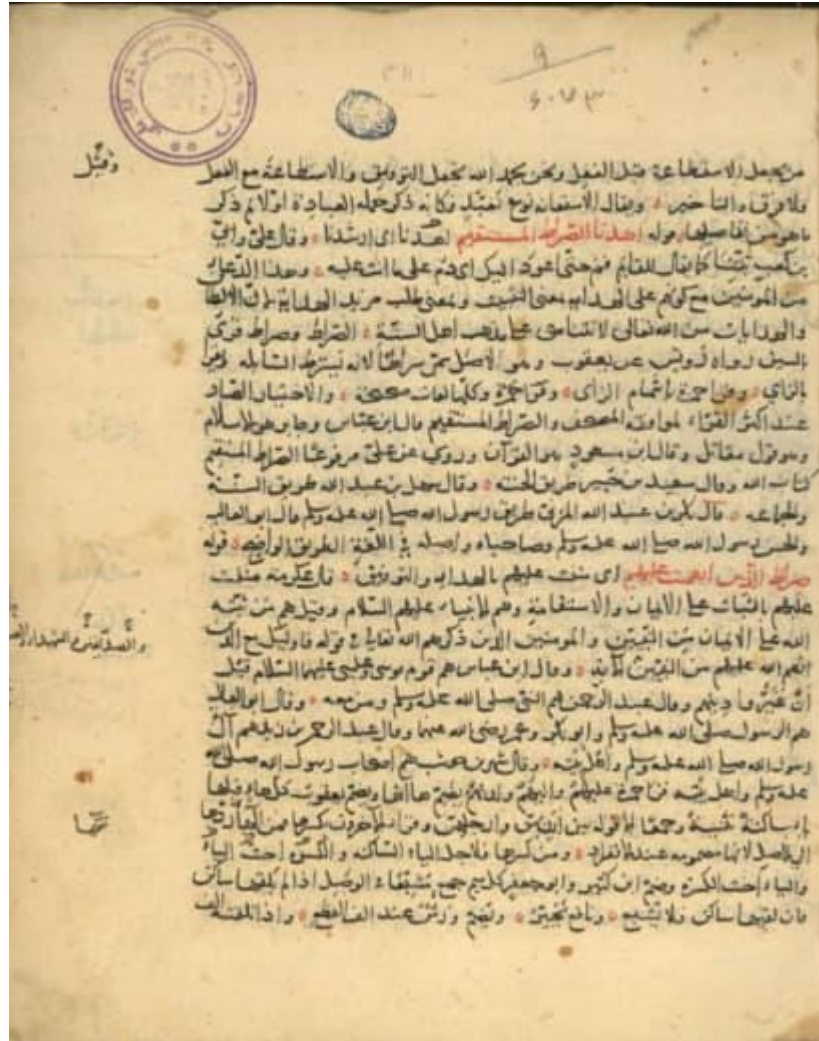 ٩
٤٠٧٣
من يجعل الاستطاعة قبل الفعل ونحن بحمد الله نجعل التوفيق والاستطاعة مع الفعل
وقيل
ولا فرق والتأخير ويقال الاستعانة نوع تعبد وكانه ذكر جملة العبادة اولا ثم ذكر
ما هو من تفاصيلها وقوله اهدنا الصراط المستقيم اهدنا اى ارشدنا وقال على وابى
بن كعب ثبتنا كما يقال للقايم قم حتى اعود اليك اى دم على ما انت عليه وهذا الدعاء
من المومنين مع كونهم على الهداية بمعنى التثبيت وبمعنى طلب مزيد الهداية لان الالطاف
والهدايات من الله تعالى لا تتناهى على مذهب اهل السنة الصراط وصراط قرئ
بالسين رواه رويس عن يعقوب وهو الاصل سمى سراطا لانه يسترط السابلة
بالزاي وقرا حمزة باشمام الزاى وكلها لغات صحيحة والاختيار الصاد
عند اكثر القراء لموافقة المصحف والصراط المستقيم قال ابن عباس وجابر هو الاسلام
وهو قول مقاتل وقال ابن مسعود هو القرآن وروي عن على مرفوعا الصراط المستقيم
كتاب الله وقال سعيد بن جبير طريق الجنة وقال سهل بن عبد الله طريق السنة
والجماعة قال بكر بن عبد الله المزنى طريق رسول الله صلى الله عليه وسلم قال ابو العالية
والحسن رسول الله صلى الله عليه وسلم وصاحباه واصله في اللغة الطريق الواضح قوله
صراط الذين انعمت عليهم اى مننت عليهم بالهداية والتوفيق قال عكرمة مننت
عليهم بالثبات على الايمان والاستقامة وهم الانبياء عليهم السلام وقيل هم من ثبته
الله على الايمان من النبيين والمومنين الذين ذكرهم الله تعالى في قوله فاولئك مع الذين
والصديقين والشهداء
انعم الله عليهم من النبيين الآية وقال ابن عباس هم قوم موسى وعيسى عليهما السلام قبل
ان غيروا دينهم وقال عبد الرحمن هم النبى صلى الله عليه وسلم ومن معه وقال ابو العالية
هم الرسول صلى الله عليه وسلم وابو بكر وعمر رضى الله عنهما وقال عبد الرحمن بن زيد هم آل
رسول الله صلى الله عليه وسلم واهل بيته وقال شهر بن حوشب هم اصحاب رسول الله صلى الله
عليه وسلم واهل بيته قرا حمزة عليهم واليهم ولديهم بضم هاآتها ويضم يعقوب كل هاء قبلها
ياء ساكنة تثنية وجمعا الا قوله بين ايديهن وارجلهن وقرا الآخرون بكسرها فمن ضم
الى الاصل لانها مضمومة عند الانفراد ومن كسرها فلاجل الياء الساكنة والكسرة اخت الياء
والياء اخت الكسرة وضم ابن كثير وابو جعفر كل ميم جمع مشبعا في الوصل اذا لم يلقها ساكن
فان لقيها ساكن فلا يشبع ونافع يخير ويضم ورش عند الف القطع واذا تلقته الف